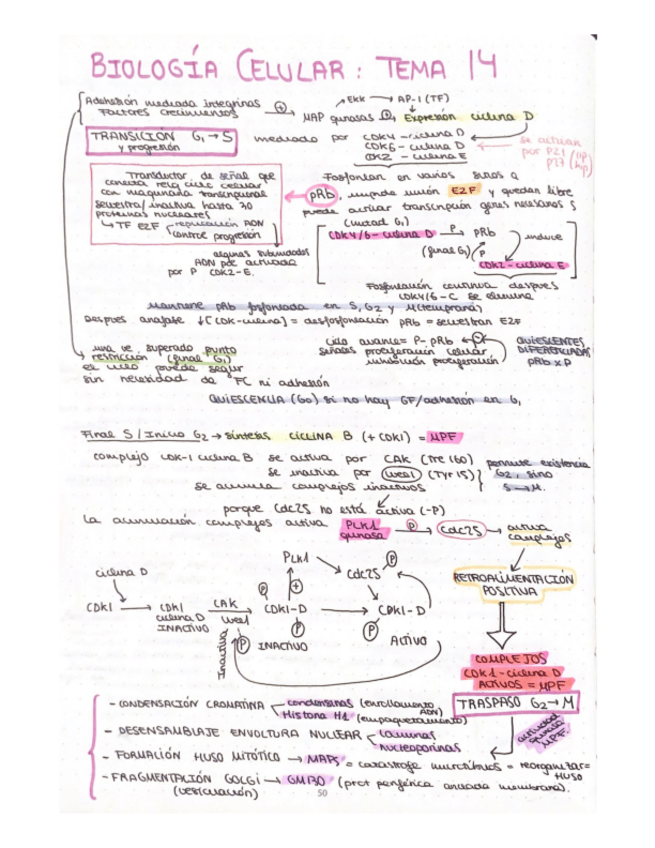 BIOLOGÍA CELULAR: TEMA 14
Adehsión mediada integrinas
Factores crecimientos
⊕
MAP quinasas
→ EKK → AP-1 (TF)
Expresión ciclina D
TRANSICIÓN G1 → S
y progresión
mediado por CDK4 - ciclina D
CDK6 - ciclina D
CDK2 - ciclina E
se activan
por P21
P27
Transductor de señal que
conecta reloj ciclo celular
con maquinaria transcripcional
secuestra/inactiva hasta 70
proteínas nucleares
↳ TF E2F
replicación ADN
control progresión
Fosforilan en varios sitios a
pRb, impide unión E2F y quedan libre
puede activar transcripción genes necesarios S
(mitad G1)
CDK4/6 - ciclina D P pRb induce
(final G1) P
CDK2 - ciclina E
ADN pol activada
por P CDK2-E.
Fosforilación continua después
CDK4/6 - C se elimina
Mantiene pRb fosforilada en S, G2 y M (temprana)
Después anafase ↓[CDK-ciclina] = desfosforilación pRb = secuestran E2F
una vez superado punto
restricción (final G1)
el ciclo puede seguir
sin necesidad de FC ni adhesión
ciclo avance = P- pRb
señales proliferación celular
inhibición proliferación
QUIESCENTES
DIFERENCIADAS
pRb x P
QUIESCENCIA (G0) si no hay GF/adhesión en G1
Final S / Inicio G2 → síntesis CICLINA B (+ CDK1) = MPF
complejo CDK-1 ciclina B se activa por CAK (Tre 160)
se inactiva por wee1 (Tyr 15)
se acumula complejos inactivos
permite existencia
G2, sino
S → M.
porque Cdc25 no está activa (-P)
La acumulación complejos activa PLK1
quinasa
P
Cdc25 → activa
complejos
RETROALIMENTACIÓN
POSITIVA
ciclina D
CDK1 → CDK1
ciclina D
INACTIVO
CAK
wee1
CDK1-D
P
INACTIVO
PLK1
P
+
Cdc25
P
CDK1-D
P
ACTIVO
Inactiva
P
COMPLEJOS
CDK1-ciclina D
ACTIVOS = MPF
TRASPASO G2 → M
actividad
quinasa
MPF.
- CONDENSACIÓN CROMATINA
condensinas (enrollamiento ADN)
Histona H1 (empaquetamiento)
- DESENSAMBLAJE ENVOLTURA NUCLEAR
Laminas
Nucleoporinas
- FORMACIÓN HUSO MITÓTICO → MAPs = catástrofe microtúbulos = reorganizar = HUSO
- FRAGMENTACIÓN GOLGI → GM130 (prot periférica anclada membrana).
(vesiculación)
50